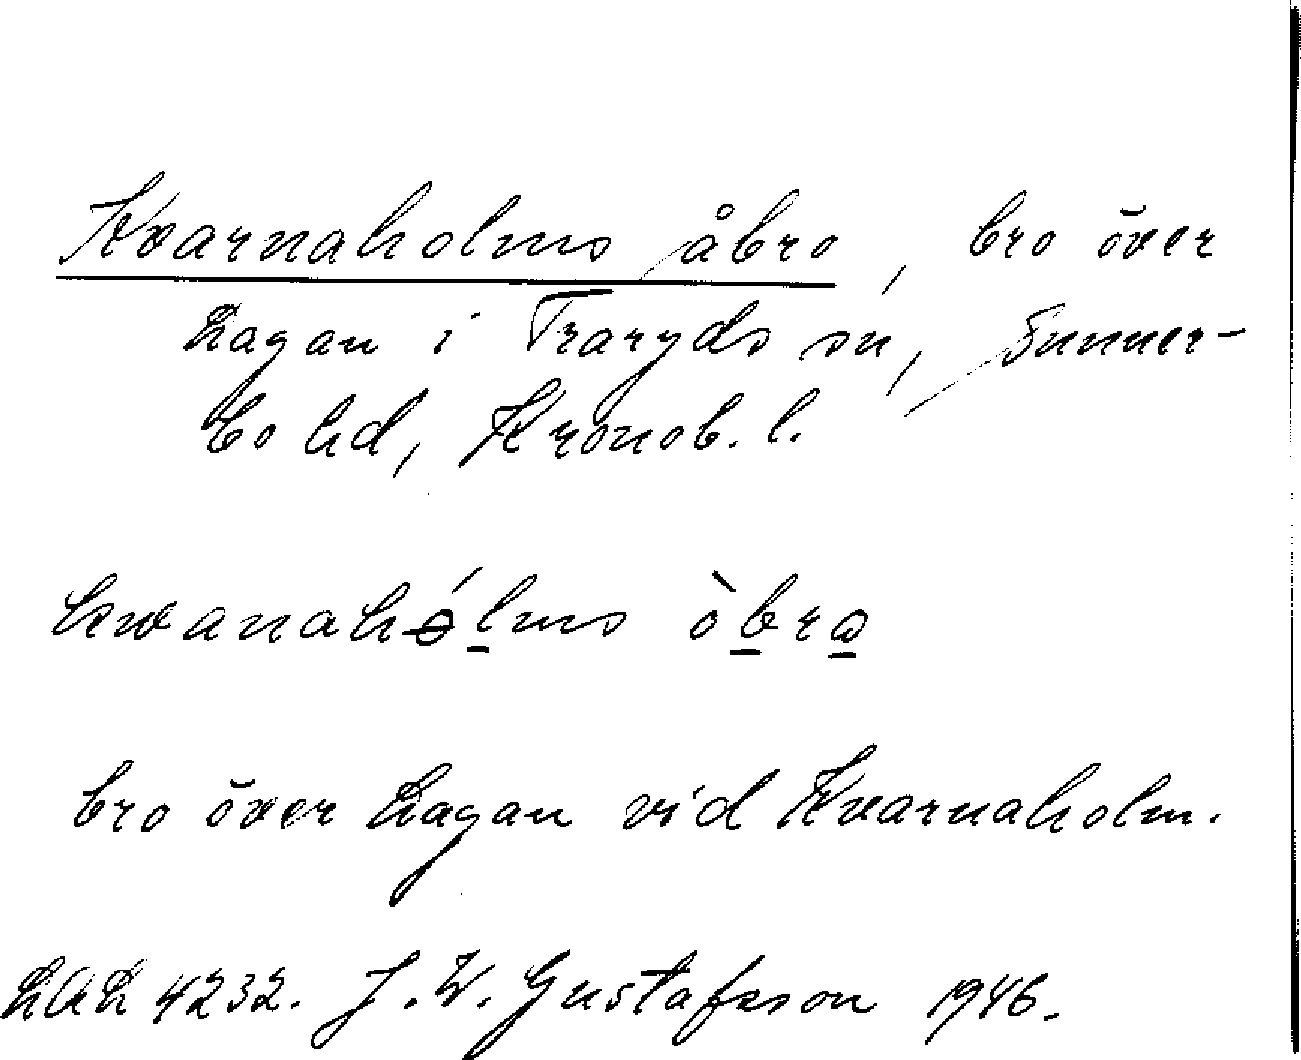 Kvarnaholms åbro, bro över
Lagan i Traryds sn, Sunner-
bo hd, Kronob. l.
kwanahólms òbro
bro över Lagan vid Kvarnaholm.
LAL 4232. J. W. Gustafsson 1946.